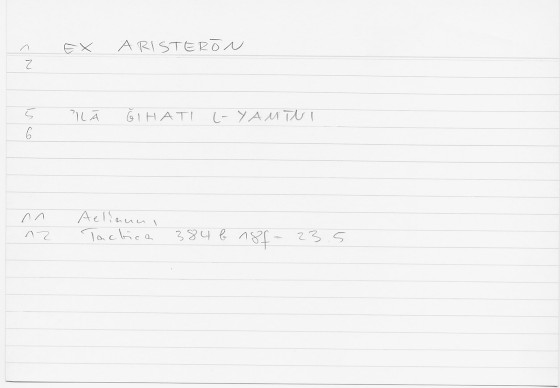 1 EX ARISTERŌN
2
5 ʾILĀ ǦIHATI L-YAMĪNI
6
11 Aelianus,
12 Tactica 384 b 18f - 23 5